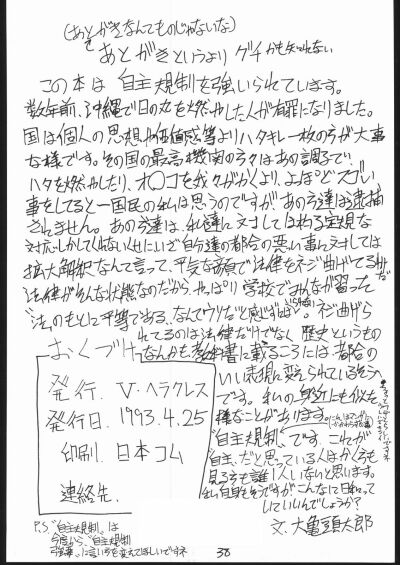 (あとがきなんてものじゃないな)
あとがきというより グチかも知れない
この本は 自主規制を強いられています。
数年前、沖縄で日の丸を燃やした人が有罪になりました。
国は個人の思想や価値感等よりハタキレ一枚の方が大事
な様です。その国の最高機関の方々はあの調子で、
ハタを燃やしたり、オ〇コを我々がかくより、よっぽどスゴい
事をしてると一国民の私は思うのですが、あの方達は逮捕
されません。あの方達は、私達に対しては杓子定規な
対応しかしてくれないくせにいざ自分達の都合の悪い事に対しては
拡大解釈なんて言って、平気な顔で法律をネジ曲げてるね
法律がそんな状態なのだから、やっぱり学校でみんなが習った
"法のもとに平等である"なんてウソだと感じずには ネジ曲げら
れてるのは法律だけでなく 歴史というもの
なんかも教科書に載るころには都合の
いい表現に変えられているそう
です。私の身近にも似た
様なことがあります。
"自主規制"です。これが
"自主"だと思っている人はかく方も
見る方も誰1人いないと思います。
私自身そうですがこんなに日和って
していいんでしょうか?
文.大亀頭太郎
おくづけ
発行. V・ヘラクレス
発行日. 1993.4.25
印刷. 日本コム
連絡先.
P.S "自主規制"は
今度から"自主規制
強要"に言い方を変えてほしいですネ
38